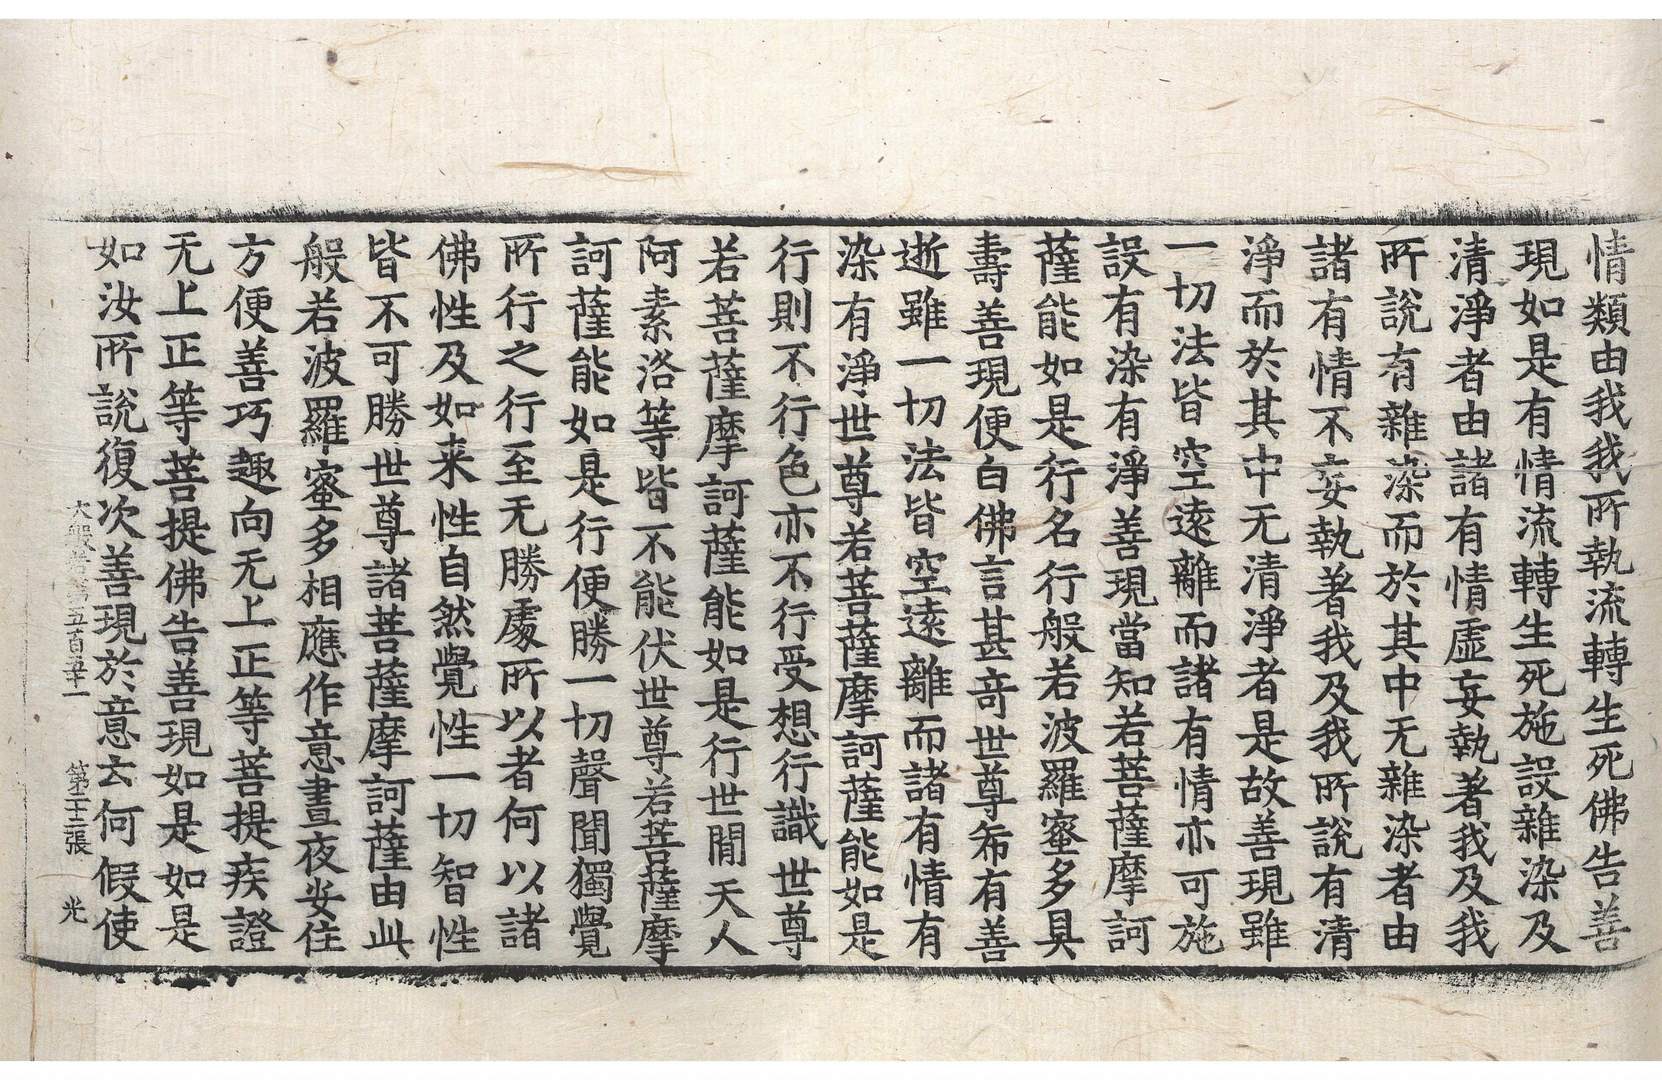 情類由我我所執流轉生死佛告善
現如是有情流轉生死施設雜染及
清淨者由諸有情虛妄執著我及我
所說有雜染而於其中无雜染者由
諸有情不妄執著我及我所說有清
淨而於其中无清淨者是故善現雖
一切法皆空遠離而諸有情亦可施
設有染有淨善現當知若菩薩摩訶
薩能如是行名行般若波羅蜜多具
壽善現便白佛言甚奇世尊希有善
逝雖一切法皆空遠離而諸有情有
染有淨世尊若菩薩摩訶薩能如是
行則不行色亦不行受想行識世尊
若菩薩摩訶薩能如是行世間天人
阿素洛等皆不能伏世尊若菩薩摩
訶薩能如是行便勝一切聲聞獨覺
所行之行至无勝處所以者何以諸
佛性及如来性自然覺性一切智性
皆不可勝世尊諸菩薩摩訶薩由此
般若波羅蜜多相應作意晝夜安住
方便善巧趣向无上正等菩提疾證
无上正等菩提佛告善現如是如是
如汝所說復次善現於意云何假使
大般若第五百五十一 第 張 光